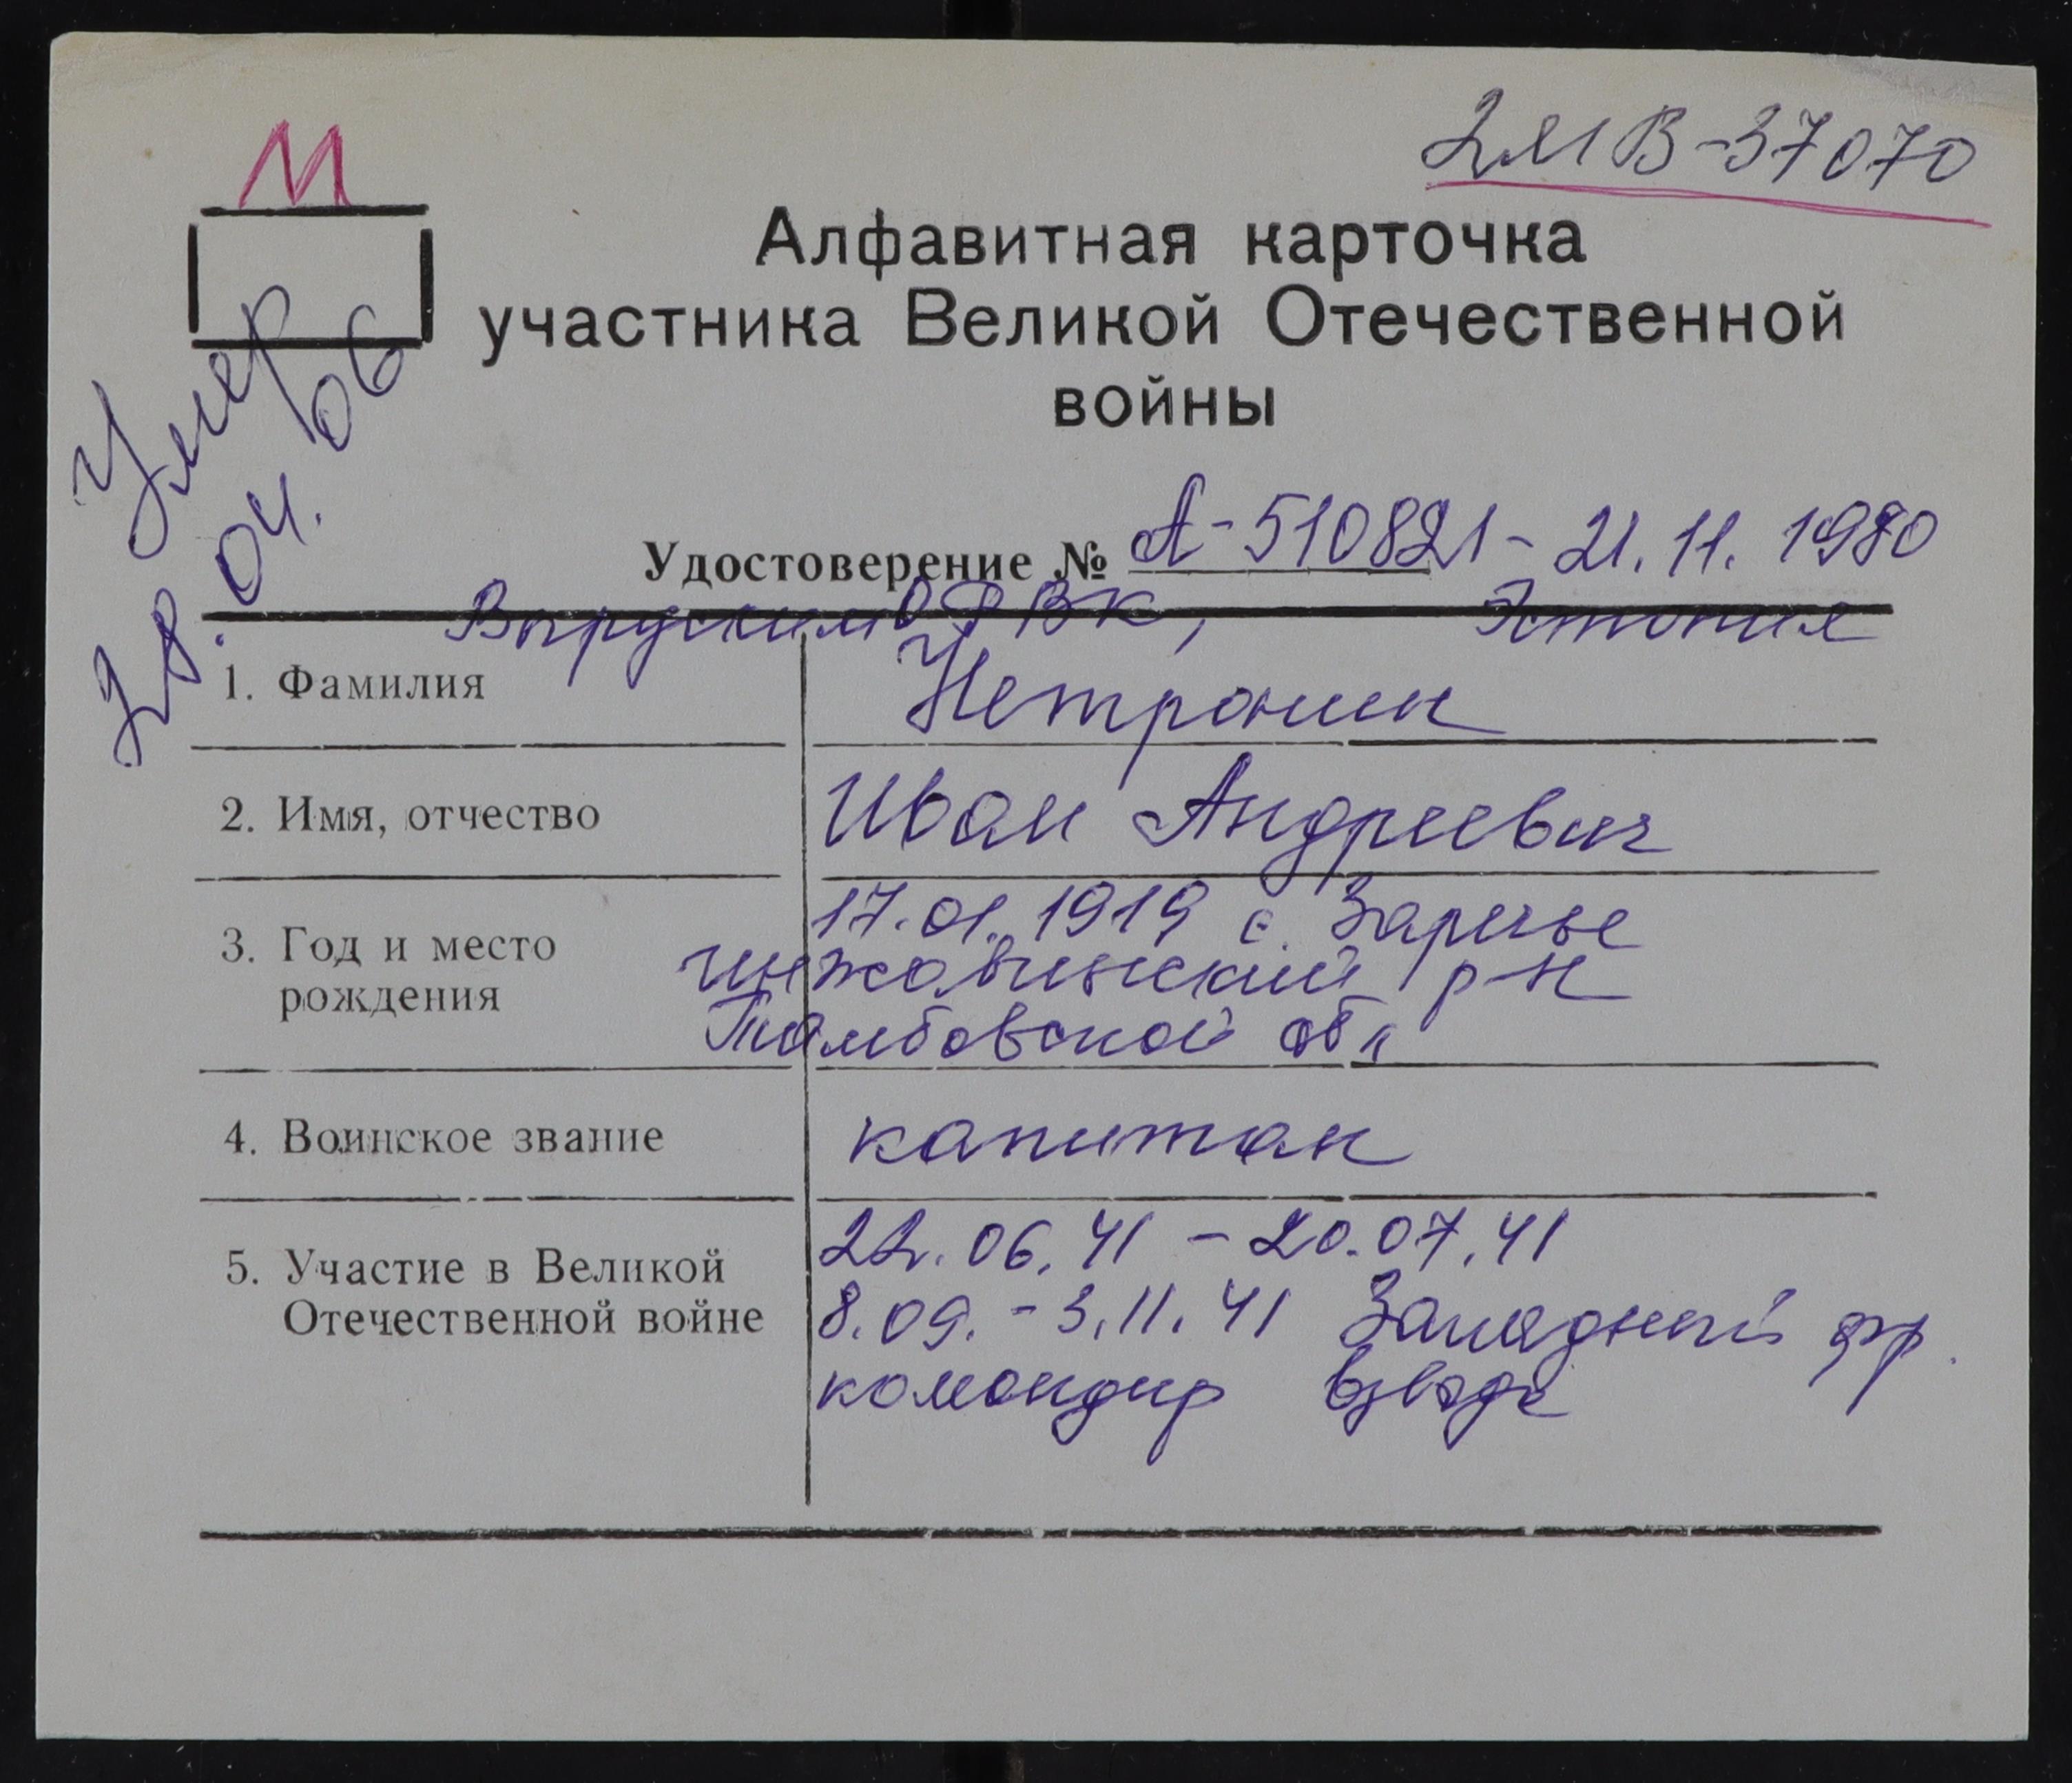 М
2МВ-37070
Алфавитная карточка
участника Великой Отечественной
войны
Умер
28.04.06
Удостоверение № А-510821 - 21.11.1980
ОРВК, Эстония
1. Фамилия Нетронин
2. Имя, отчество Иван Андреевич
3. Год и место рождения 17.01.1919 с. Заречье
инжавинский р-н
Тамбовской обл
4. Воинское звание капитан
5. Участие в Великой Отечественной войне 22.06.41 - 20.07.41
8.09. - 3.11.41 Западный фр.
командир взвода